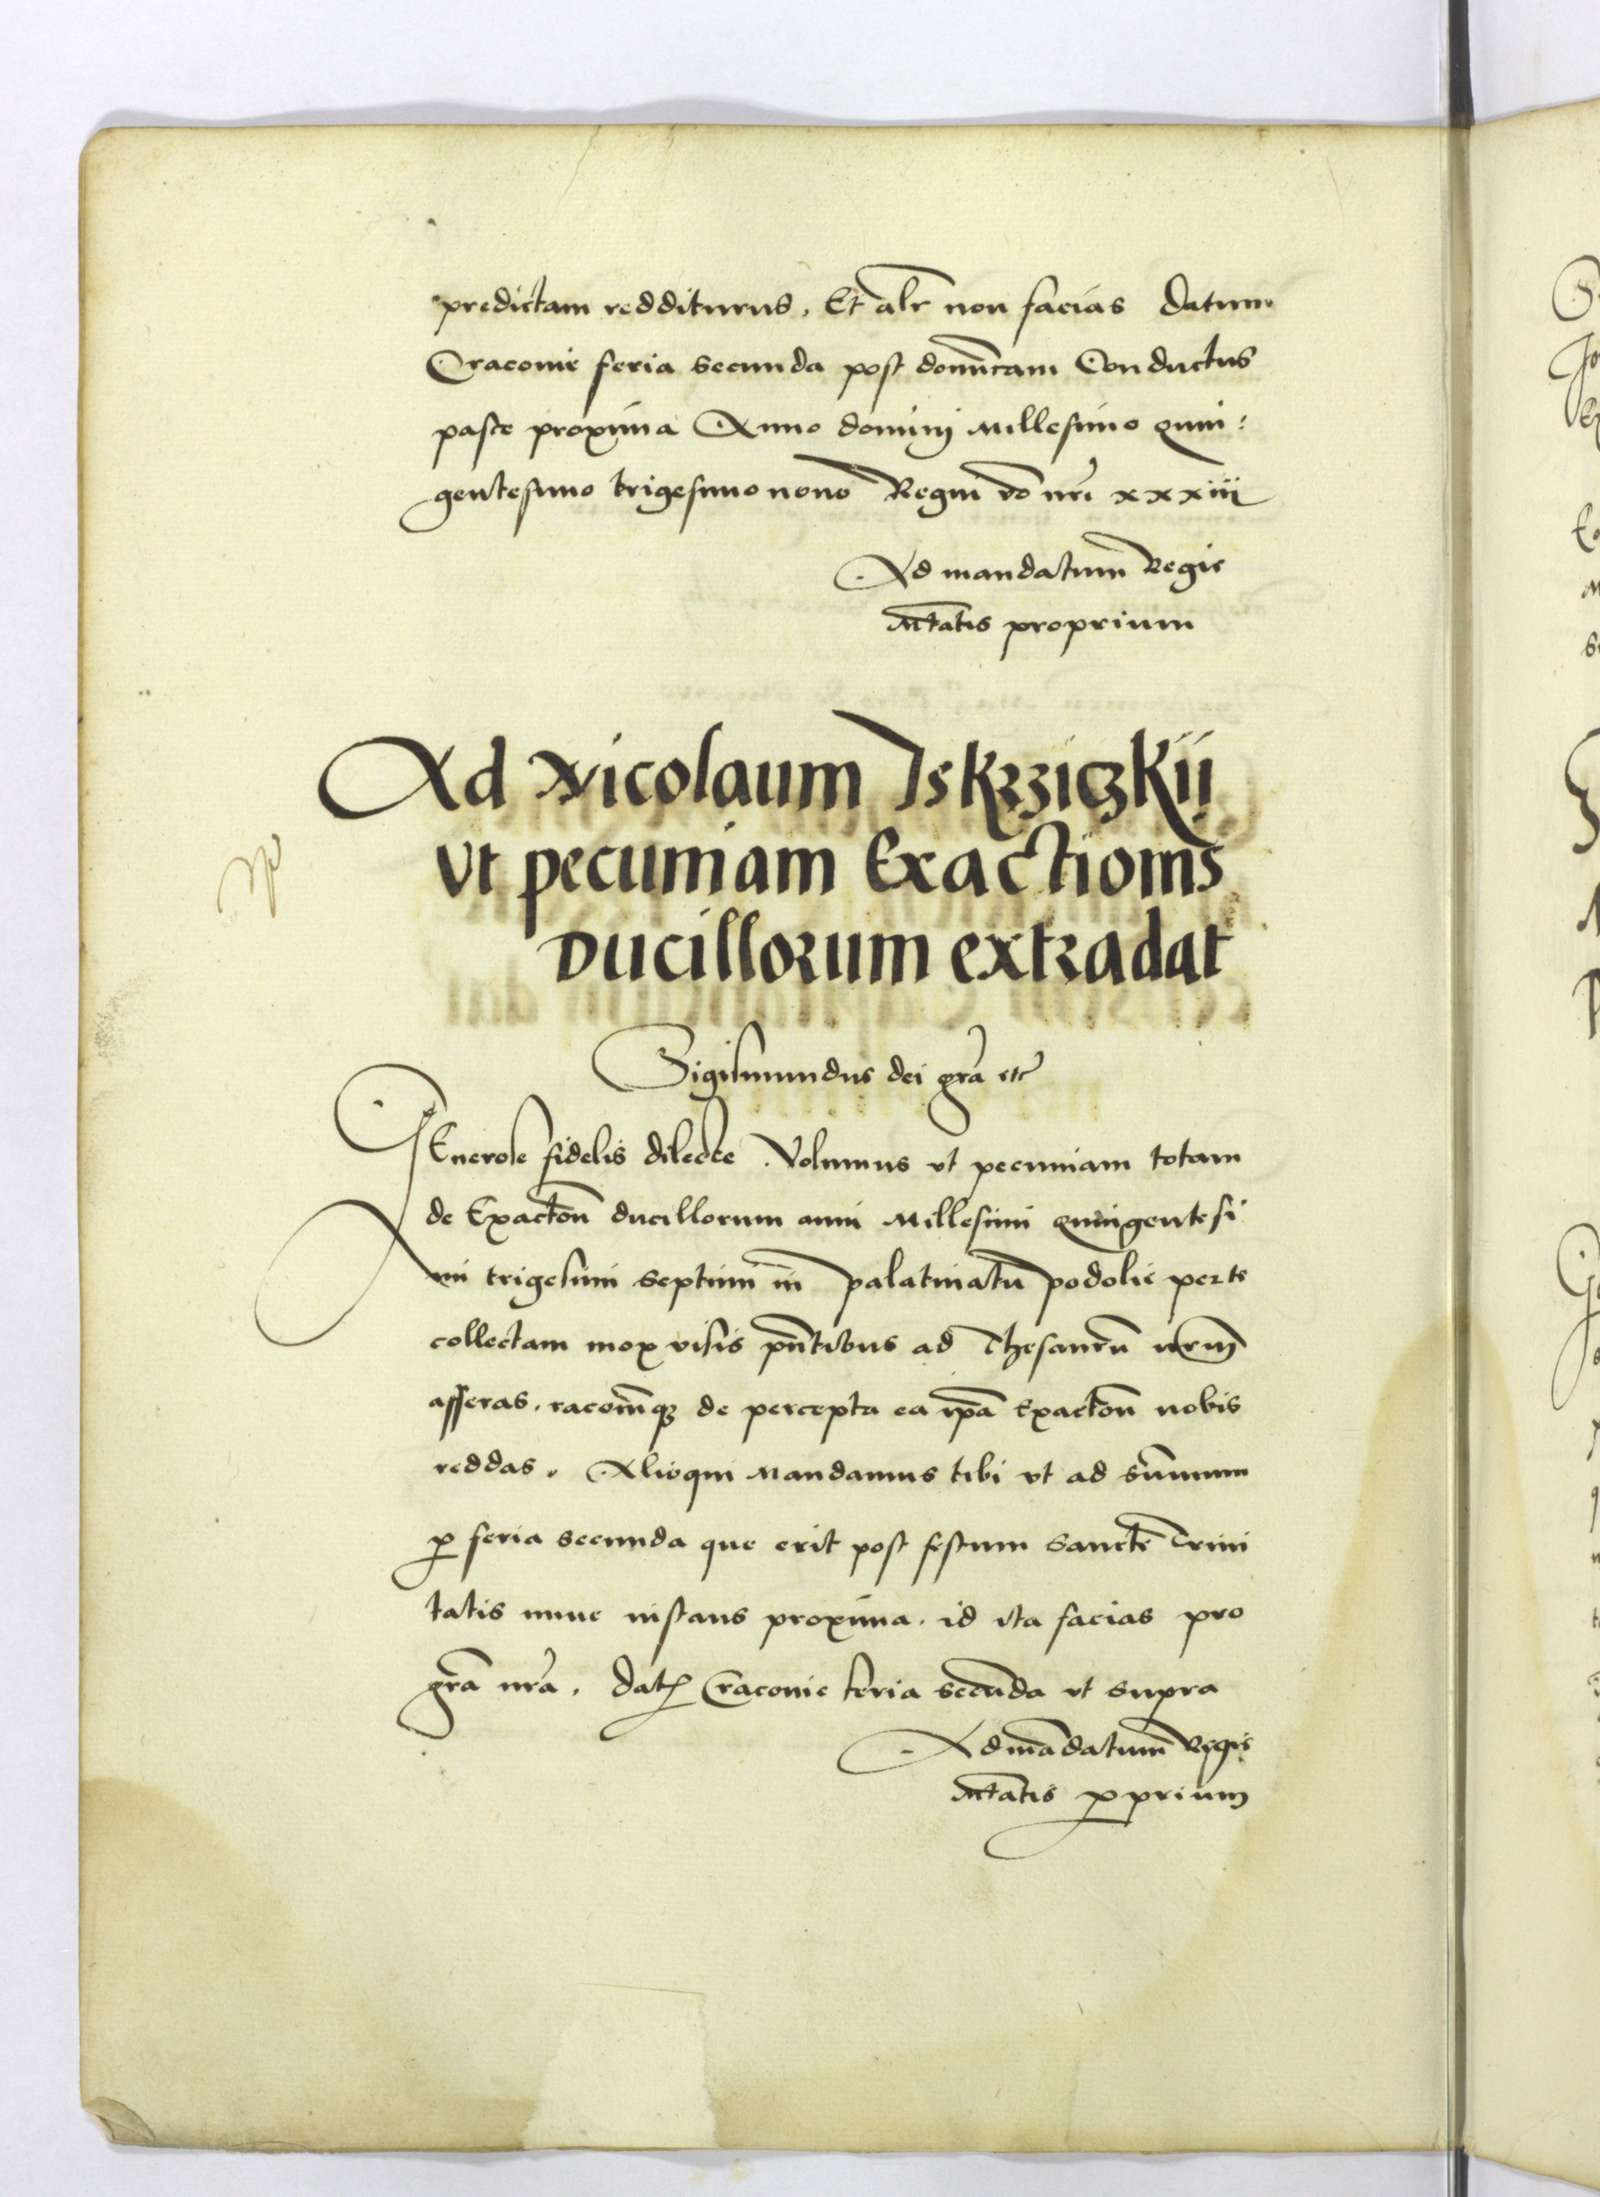 predictam redditurus, Et alr non facias Datum
Cracovie feria secunda post domicam Conductus
pasce proxima Anno domini Millesimo quin:
gentesimo trigesimo nono Regni vo nri xxxiii
Ad mandatum Regie
Mtatis proprium
Ad Nicolaum Iskrziczkij
Vt pecuniam Exactionis
Ducillorum extradat
Sigismundus dei gra etc
Generose fidelis dilecte. Volumus vt pecuniam totam
de Exacton ducillorum anni Millesimi quingentesi
mi trigesimi septimi in palatinatu podolie per te
collectam mox visis pntibus ad Thesauru nrum
asseras. raconemq de percepta ea ipa Exacton nobis
reddas. Alioqui Mandamus tibi vt ad summum
p feria secunda que erit post festum Sancte Trini
tatis nunc instans proxima. id ita facias pro
gra nra. Dat Cracovie feria secunda vt supra
Ad mandatum Regie
Mtatis pprium